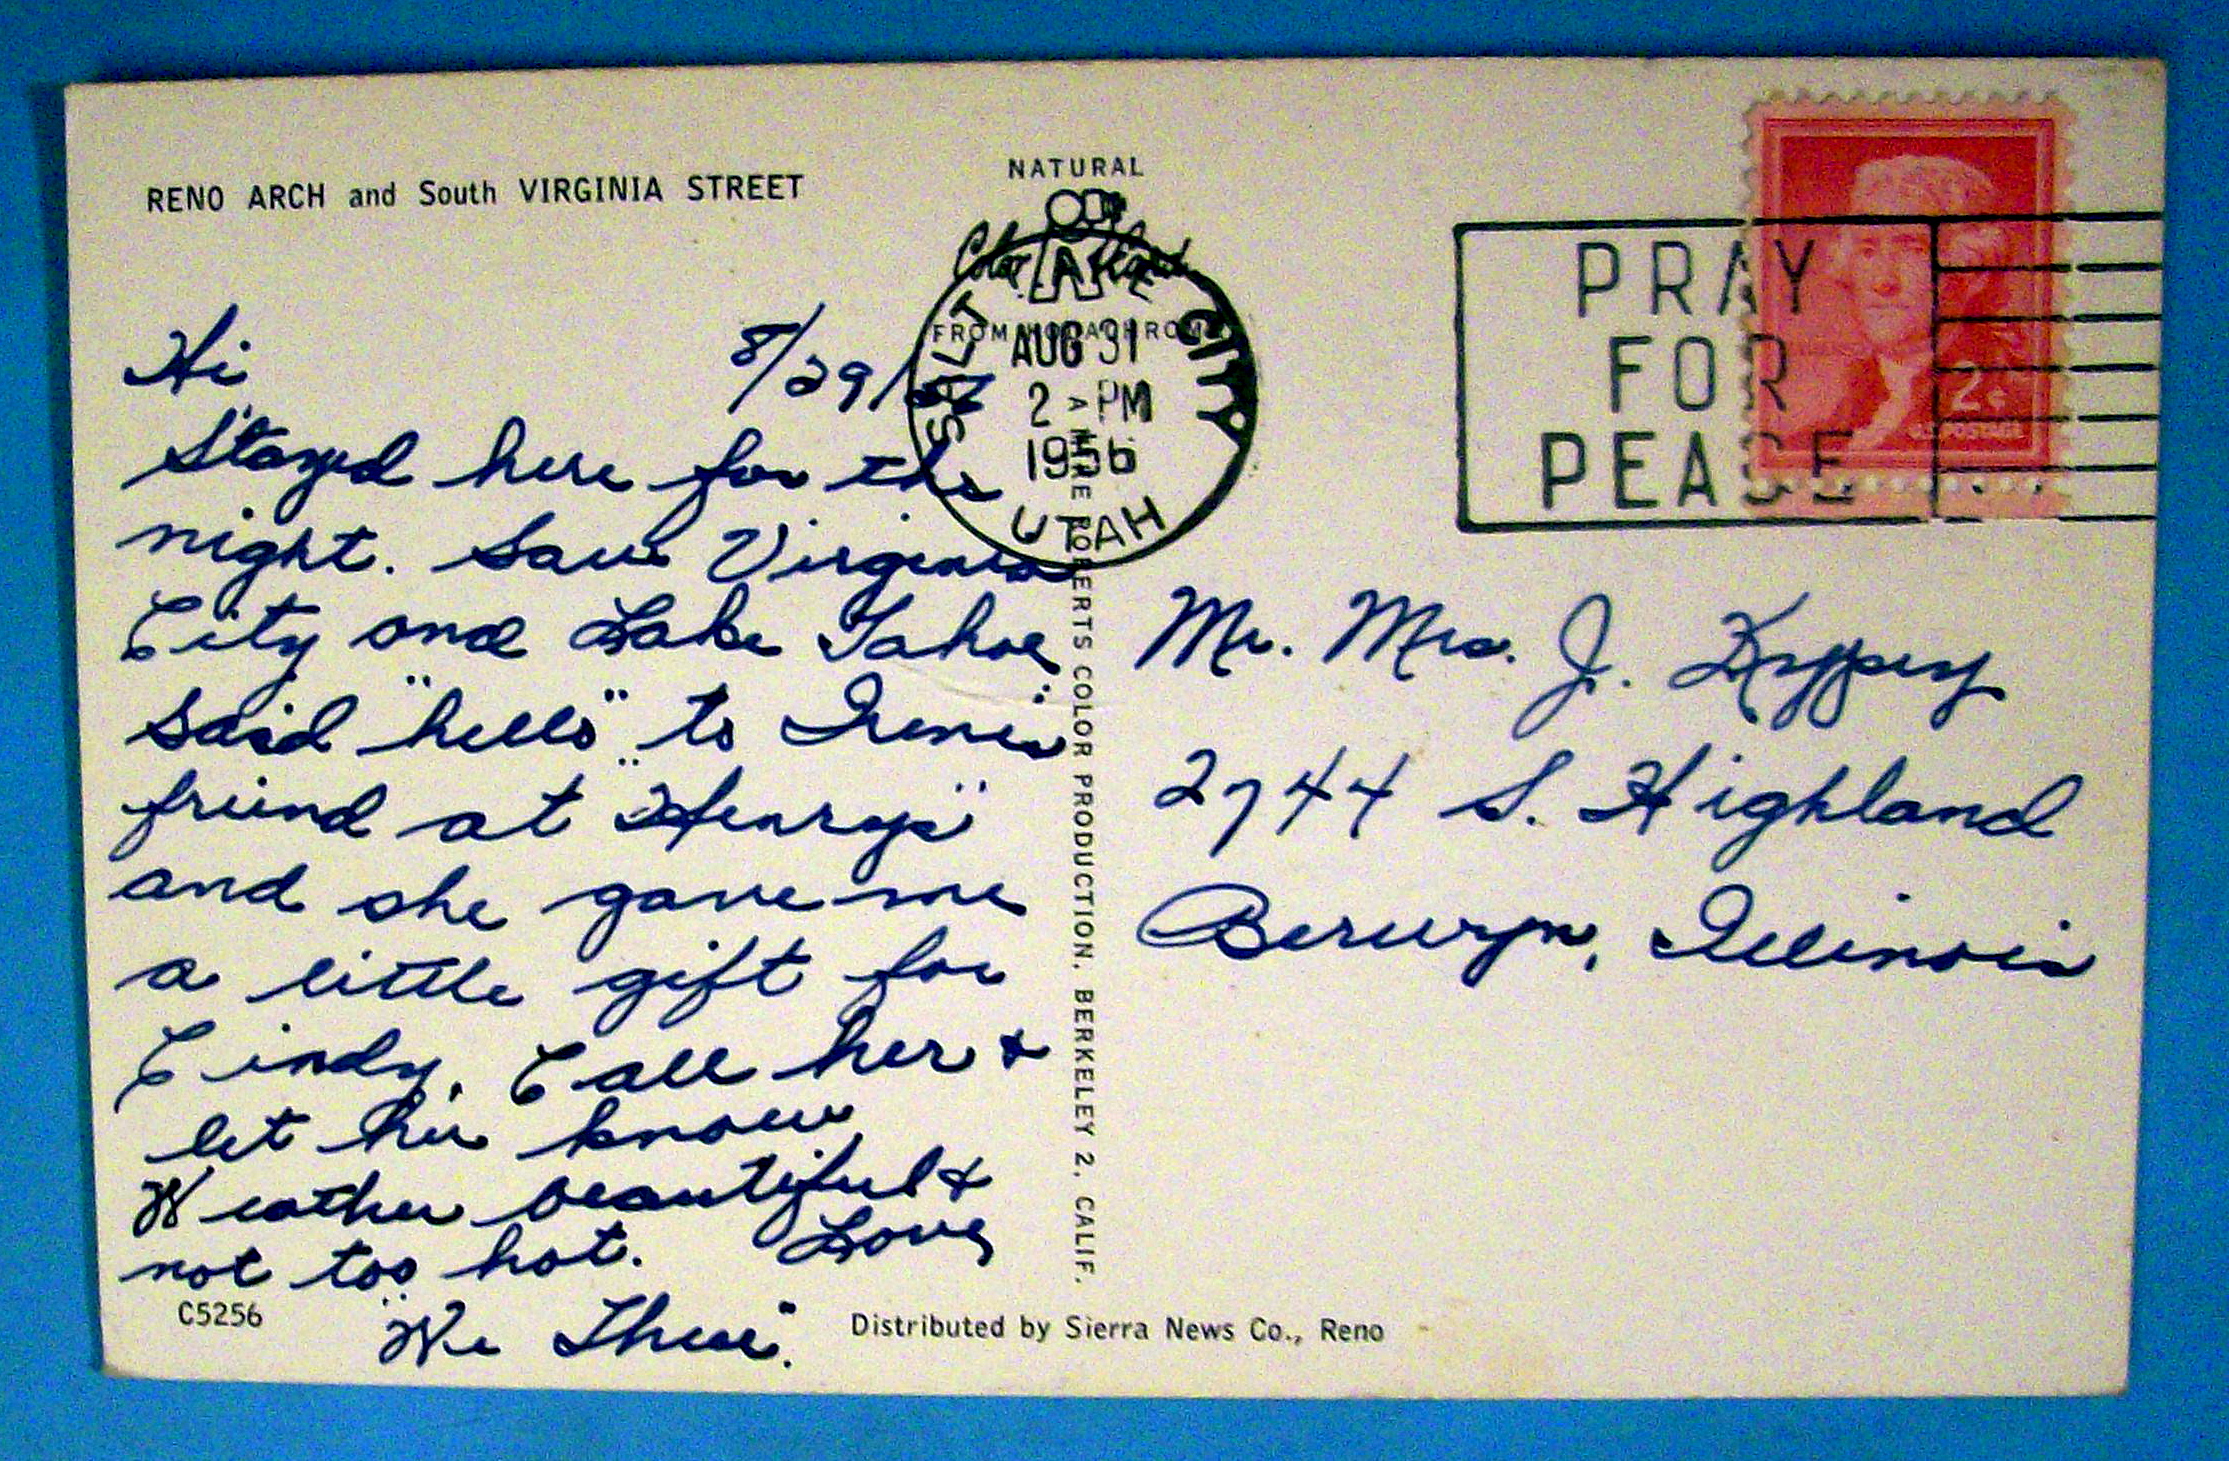 RENO ARCH and South VIRGINIA STREET
NATURAL
Color
FROM KODACHROME
SALT LAKE CITY
AUG 31
2 PM
1956
UTAH
PRAY
FOR
PEACE
2¢
U.S. POSTAGE
Hi 8/29/56
Stayed here for the
night. Saw Virginia
City and Lake Tahoe
said "hello" to Irene's
friend at "Henrys"
and she gave me
a little gift for
Cindy. Call her &
let her know
Weather beautiful &
not too hot. Love,
"We Three".
Mr. Mrs. J.
2744 S. Highland
Berwyn, Illinois
A MIKE ROBERTS COLOR PRODUCTION. BERKELEY 2, CALIF.
C5256
Distributed by Sierra News Co., Reno